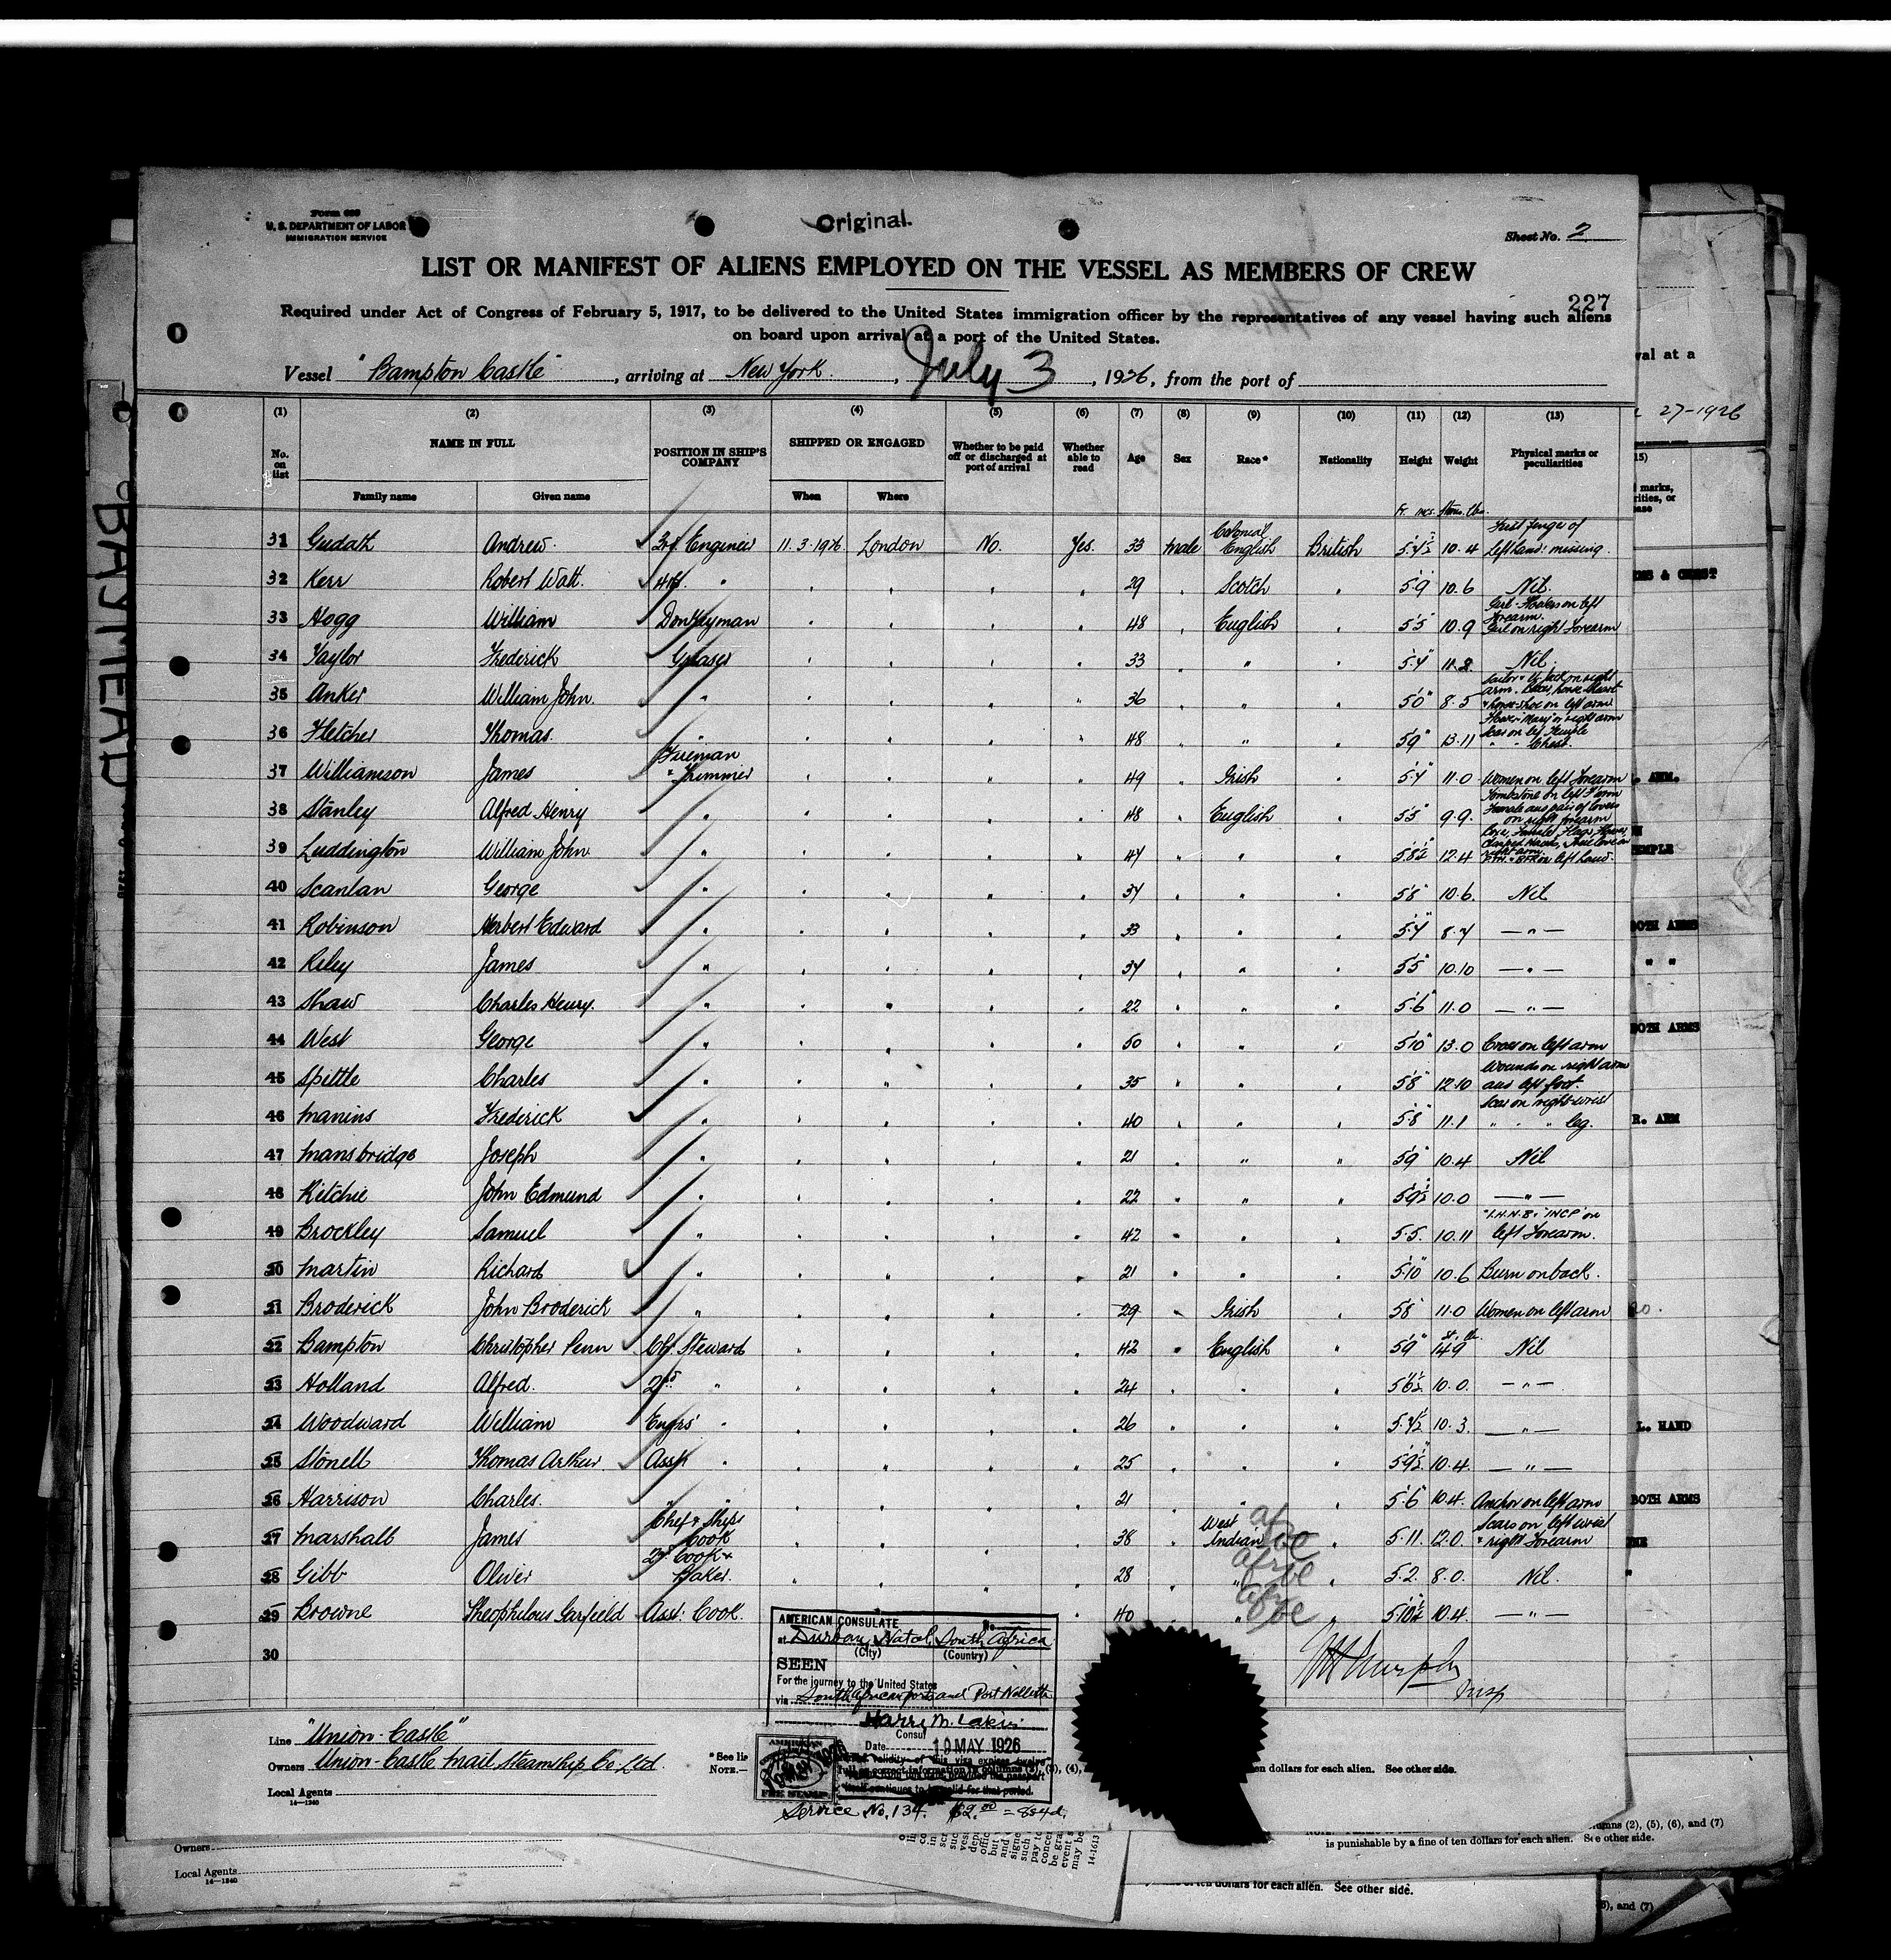 Form 689
U. S. DEPARTMENT OF LABOR
IMMIGRATION SERVICE
Original.
Sheet No. 2
LIST OR MANIFEST OF ALIENS EMPLOYED ON THE VESSEL AS MEMBERS OF CREW
227
Required under Act of Congress of February 5, 1917, to be delivered to the United States immigration officer by the representatives of any vessel having such aliens
on board upon arrival at a port of the United States.
Vessel "Bampton Castle", arriving at New York, July 3, 1926, from the port of
(1) (2) (3) (4) (5) (6) (7) (8) (9) (10) (11) (12) (13)
No. on list NAME IN FULL POSITION IN SHIP'S COMPANY SHIPPED OR ENGAGED Whether to be paid off or discharged at port of arrival Whether able to read Age Sex Race* Nationality Height Weight Physical marks or peculiarities
Family name Given name When Where
31 Gudath Andrew. 3rd. Engineer 11.3.1926 London No. Yes. 33 male Colonial English British 5'4½" 10.4 First finger of left hand: missing.
32 Kerr Robert Watt. 4th. " 29 Scotch 5'9 10.6 Nil.
33 Hogg William Donkeyman 48 English 5'5" 10.9 Girl-Flowers on left forearm. Girl on right forearm
34 Taylor Frederick Greaser 33 " 5'4" 11.8 Nil.
35 Anker William John. " 36 " 5'0" 8.5
36 Fletcher Thomas. " 48 " 5'9" 13.11
37 Williamson James Fireman & Trimmer 49 Irish 5'4" 11.0 Women on left forearm
38 Stanley Alfred Henry " 48 English 5'5" 9.9. Tombstone on left F'arm Female and pair of lovers on right forearm
39 Luddington William John " 44 " 5'8½" 12.4
40 Scanlan George " 34 " 5'8" 10.6. Nil
41 Robinson Herbert Edward " 33 " 5'4" 8.4 — " —
42 Riley James " 34 " 5'5" 10.10 — " —
43 Shaw Charles Henry. " 22 " 5'6" 11.0 — " —
44 West George " 50 " 5'10" 13.0 Cross on left arm
45 Spittle Charles " 35 " 5'8" 12.10 Wounds on right arm and left foot.
46 Manins Frederick " 40 " 5'8" 11.1 Scar on right wrist " " " leg.
47 Mansbridge Joseph " 21 " 5'9" 10.4 Nil
48 Kitchie John Edmund " 22 " 5'9½ 10.0 — " —
49 Brockley Samuel " 42 " 5.5. 10.11 "I.H.N.B." "INCP" on left forearm.
20 Martin Richard " 21 " 5'10" 10.6 Burn on back.
21 Broderick John Broderick " 29 Irish 5'8 11.0 Women on left arm
22 Bampton Christopher Penn Chf. Steward 42 English 5'9" 14.9 Nil
23 Holland Alfred. 2nd. " 24 " 5'6½ 10.0. — " —
24 Woodward William Engrs' " 26 " 5.4½ 10.3. — " —
25 Stonell Thomas Arthur. Asst. " 25 " 5'9½ 10.4. — " —
26 Harrison Charles. " " 21 " 5'6" 10.4. Anchor on left arm
27 Marshall James Chef & Ships Cook 38 West Indian 5.11. 12.0. Scars on left wrist & right forearm
28 Gibb Oliver 2nd Cook & Baker. 28 " 5.2. 8.0. Nil.
29 Browne Theophilous Garfield Asst: Cook. 40 " 5.10½ 10.4. — " —
30
AMERICAN CONSULATE No.
at Durban, Natal, South Africa
(City) (Country)
SEEN
For the journey to the United States
via South African ports and Port Nolloth
Harry M. Lakin
Consul
Date 19 MAY 1926
Insp
Line "Union-Castle"
Owners Union-Castle Mail Steamship Co Ltd.
Local Agents
14—1240
* See lis
NOTE.—
ten dollars for each alien. See other side.
Service No. 134. $2.00 = 8s4d.
BAYMEAD
val at a
27-1926
marks,
BOTH ARMS
BOTH ARMS
R. ARM
L. HAND
BOTH ARMS
Owners
Local Agents
14—1240
14-1613
columns (2), (5), (6), and (7)
is punishable by a fine of ten dollars for each alien. See other side.
of ten dollars for each alien. See other side.
and (7)